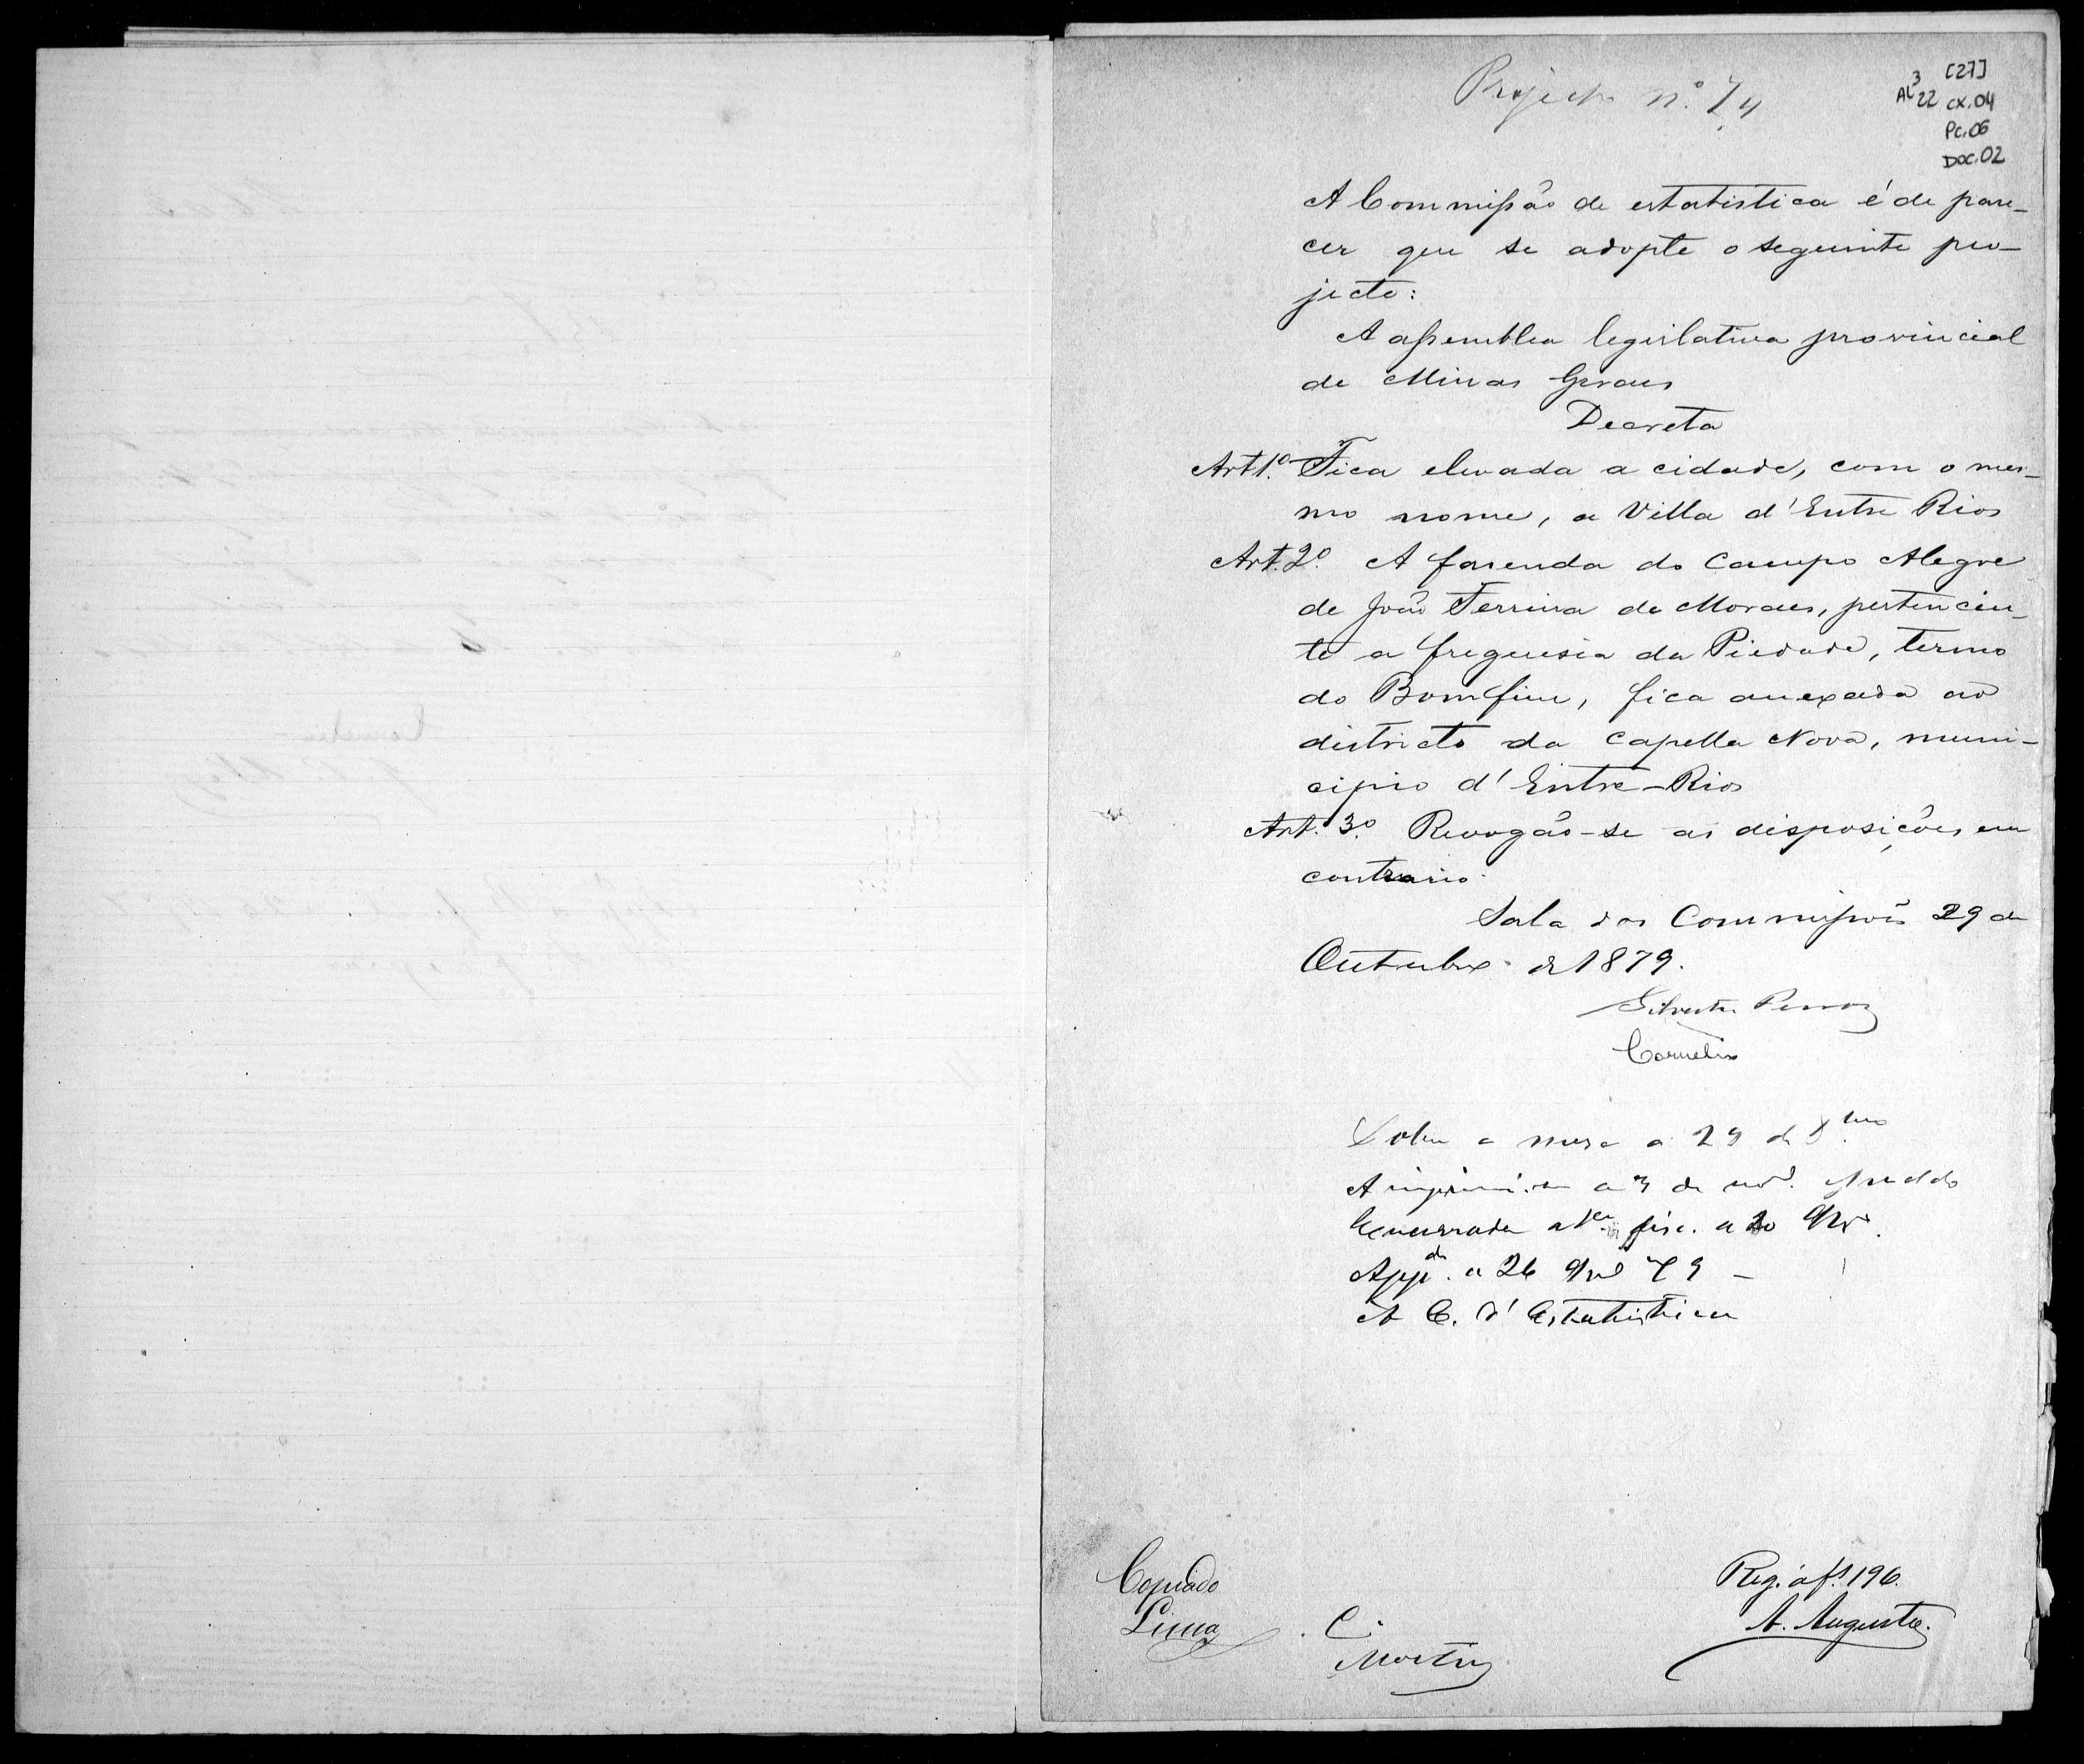 Projecto nº. 74
[27]
AL 3 22 cx.04
Pc.06
Doc.02
A Commissão de estatistica é de pare-
cer que se adopte o seguinte pro-
jecto:
A assemblea legislativa provincial
de Minas Geraes
Decreta
Art 1.º Fica elevada a cidade, com o mes-
mo nome, a Villa d'Entre Rios
Art. 2º. A fazenda do Campo Alegre
de João Ferreira de Moraes, pertencen-
te a freguesia da Piedade, termo
do Bomfim, fica anexada ao
districto da Capella Nova, muni-
cipio d'Entre-Rios
Art. 3.º Revogão-se as disposições em
contrario.
Sala das Commissões 29 de
Outubro de 1879.
Silvestre Ferraz
Cornelio
Sobre a mesa a 29 de 8bro
A imprimir a 3 de
Encerrada a 1ª disc. a 20 9br.
Appda. a 26 9br 79 -
A C. d'Estatistica
Copiado
Lima
C.
Martins
Reg. á fs 196.
A. Augusto.